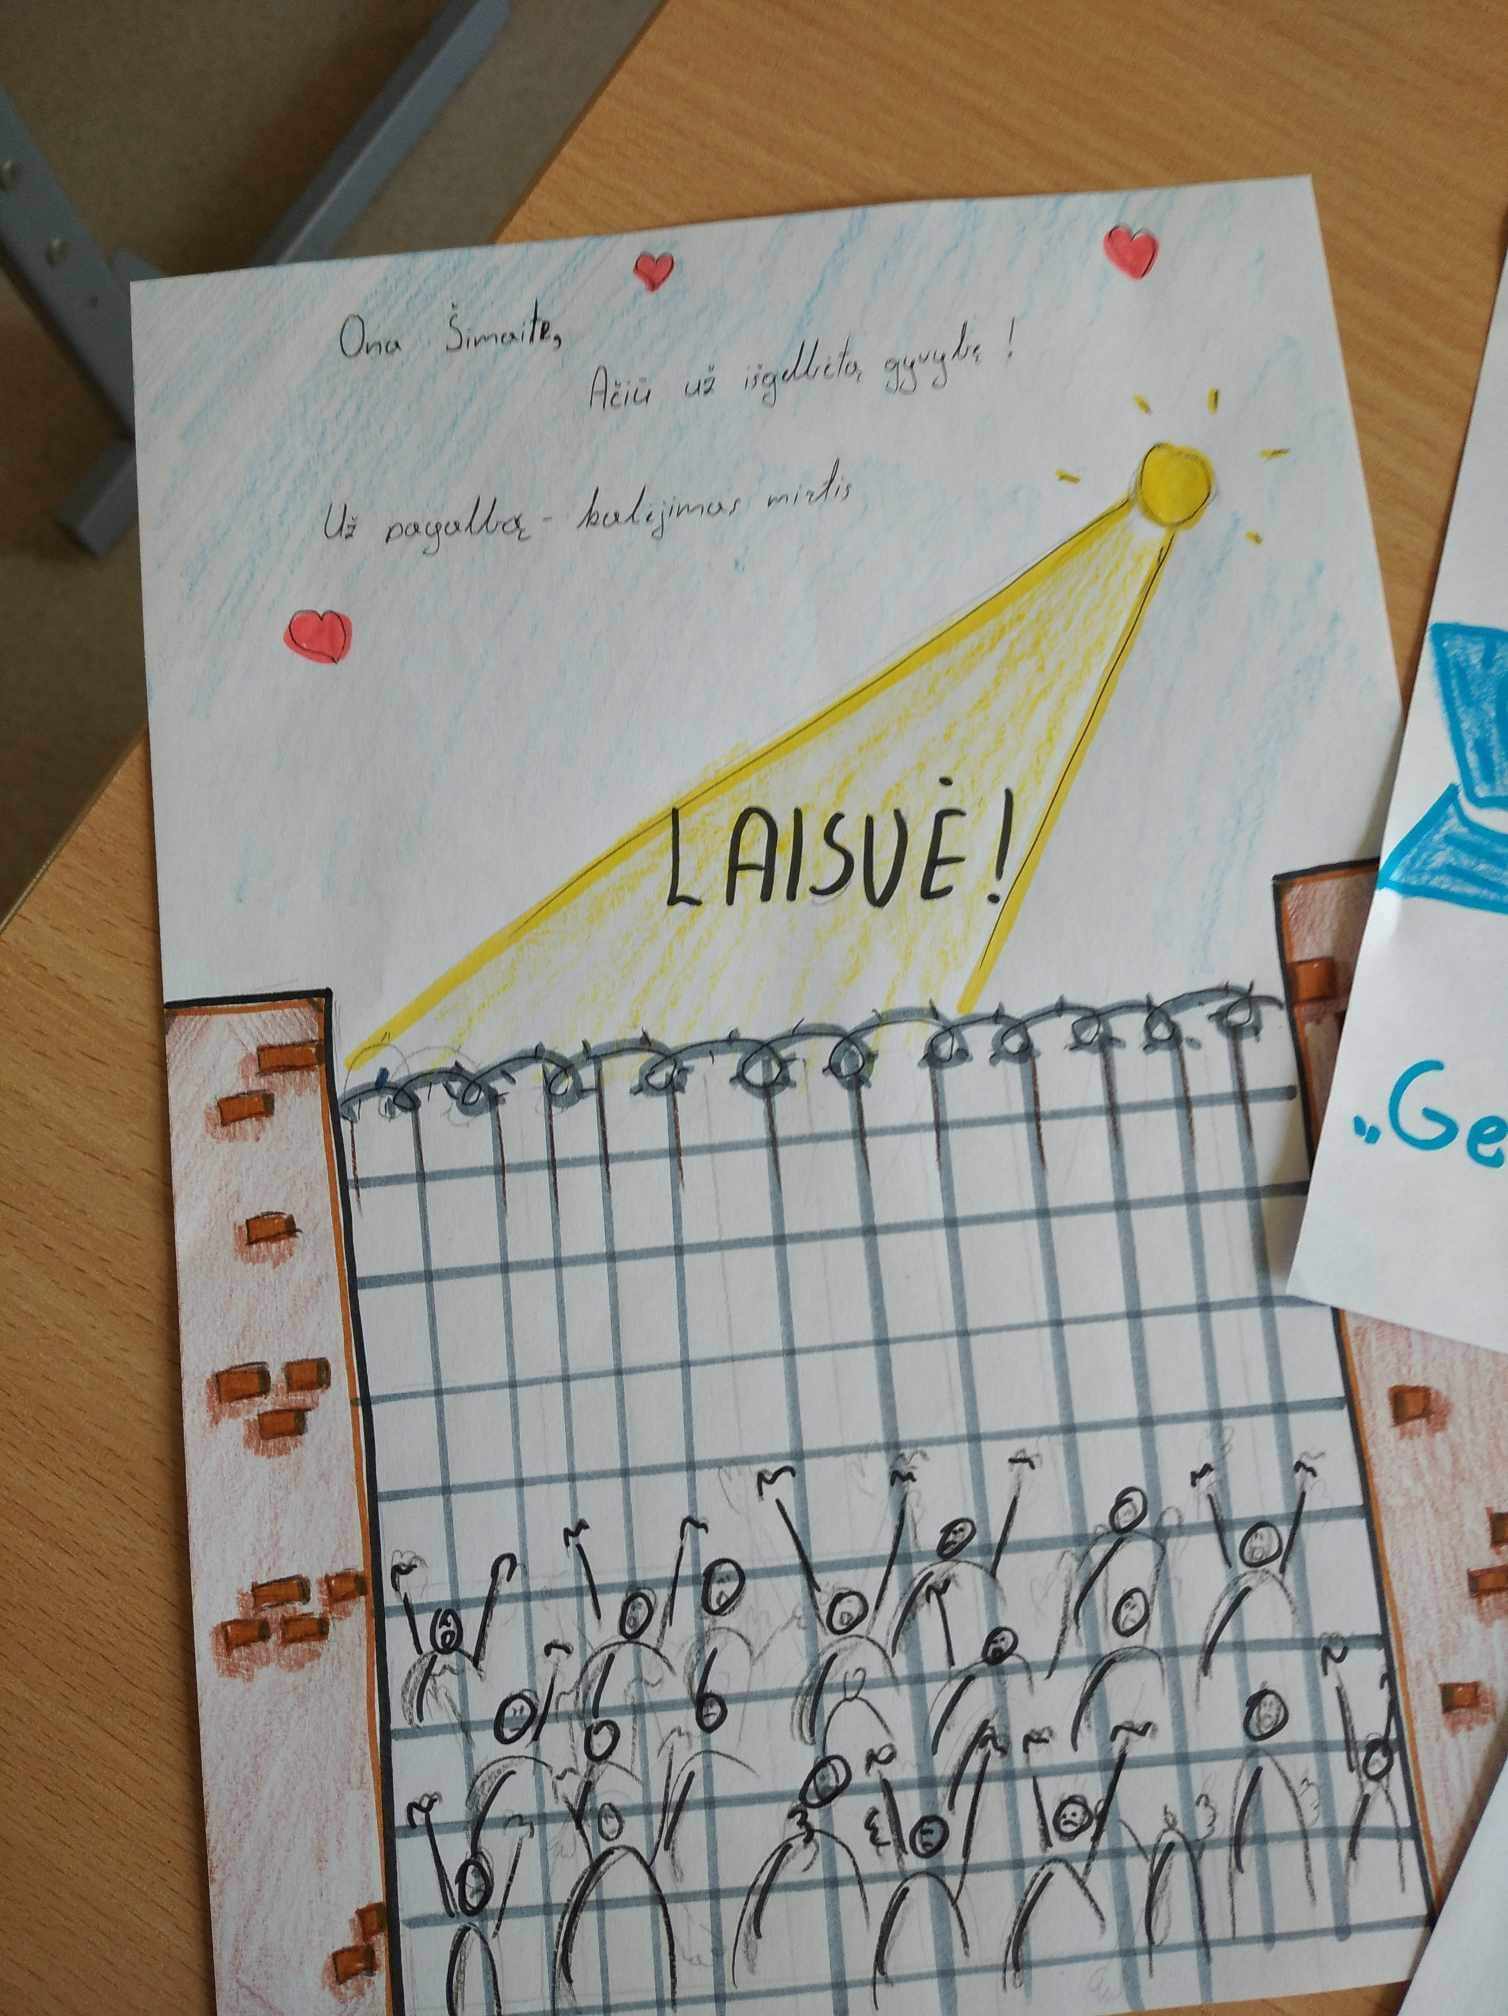 Ona Šimaite,
Ačiū už išgelbėtą gyvybę !
Už pagalbą - kalėjimas mirtis
LAISVĖ!
„Ge